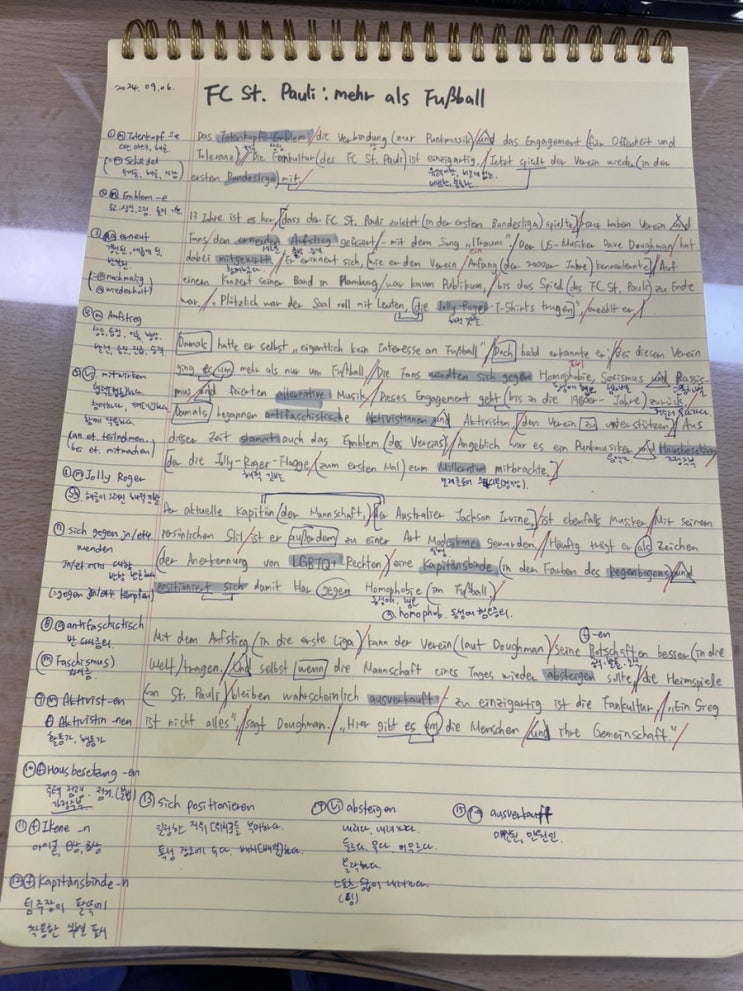 2024. 09. 06.
FC St. Pauli : mehr als Fußball
Das Totenkopf-Emblem, die Verbindung (zur Punkmusik) und das Engagement (für Offenheit und
Toleranz) Die Fankultur (des FC St. Pauli) ist einzigartig. Jetzt spielt der Verein wieder (in der
ersten Bundesliga) mit
13 Jahre ist es her, dass der FC St. Pauli zuletzt (in der ersten Bundesliga) spielte haben Verein und
Fans den erneuten Aufstieg gefeiert - mit dem Song „Traum" Der US-Musiker Dave Doughman hat
dabei mitgewirkt Er erinnert sich, wie er den Verein Anfang (der 2000er Jahre) kennenlernte Auf
einem Konzert seiner Band in Hamburg war kaum Publikum, bis das Spiel (des FC St. Pauli) zu Ende
war „Plötzlich war der Saal voll mit Leuten, die Jolly-Roger-T-Shirts trugen", erzählt er
Damals hatte er selbst „eigentlich kein Interesse an Fußball" Doch bald erkannte er: Bei diesem Verein
ging es um mehr als nur um Fußball Die Fans wandten sich gegen Homophobie, Sexismus und Rassis-
mus und feierten alternative Musik Dieses Engagement geht (bis in die 1980er-Jahre) zurück.
Damals begannen antifaschistische Aktivistinnen und Aktivisten, den Verein zu unterstützen Aus
dieser Zeit stammt auch das Emblem (des Vereins) Angeblich war es ein Punkmusiker und Hausbesetzer
der die Jolly-Roger-Flagge (zum ersten Mal) zum Millerntor mitbrachte.
Der aktuelle Kapitän (der Mannschaft,) der Australier Jackson Irvine, ist ebenfalls Musiker Mit seinem
persönlichen Stil ist er außerdem zu einer Art Modeikone geworden Häufig trägt er als Zeichen
(der Anerkennung von LGBTQ+ Rechten) eine Kapitänsbinde (in den Farben des Regenbogens) und
positioniert sich damit klar gegen Homophobie (im Fußball)
homophob.
Mit dem Aufstieg (in die erste Liga) kann der Verein (laut Doughman) seine Botschaften besser (in die
Welt) tragen. Und selbst wenn die Mannschaft eines Tages wieder absteigen sollte, die Heimspiele
(von St. Pauli) bleiben wahrscheinlich ausverkauft zu einzigartig ist die Fankultur „Ein Sieg
ist nicht alles", sagt Doughman. „Hier gibt es um die Menschen und ihre Gemeinschaft."
① ⓜ Totenkopf ⸚e
(= ⓜ Schädel
② ⓝ Emblem -e
③ ⓐ erneut
(= ⓐ nochmalig
ⓐ wiederholt)
④ ⓜ Aufstieg
⑤ ⓥⁱ mitwirken
(an et. teilnehmen,
bei et. mitmachen)
⑥ ⓜ Jolly Roger
⑦ sich gegen jn/etw
wenden
(= gegen jn/etw kämpfen)
⑧ ⓐ antifaschistisch
(ⓜ Faschismus)
⑨ ⓜ Aktivist -en
ⓕ Aktivistin -nen
활동가, 행동가
⑩ ⓕ Hausbesetzung -en
⑪ ⓕ Ikone -n
아이콘, 우상, 화상
⑫ ⓕ Kapitänsbinde -n
팀 주장이 팔뚝에
착용한 식별 표시
⑬ sich positionieren
⑭ ⓥⁱ absteigen
내리다, 내려가다.
몰락하다.
⑮ ausverkauft
매진된, 만원인.